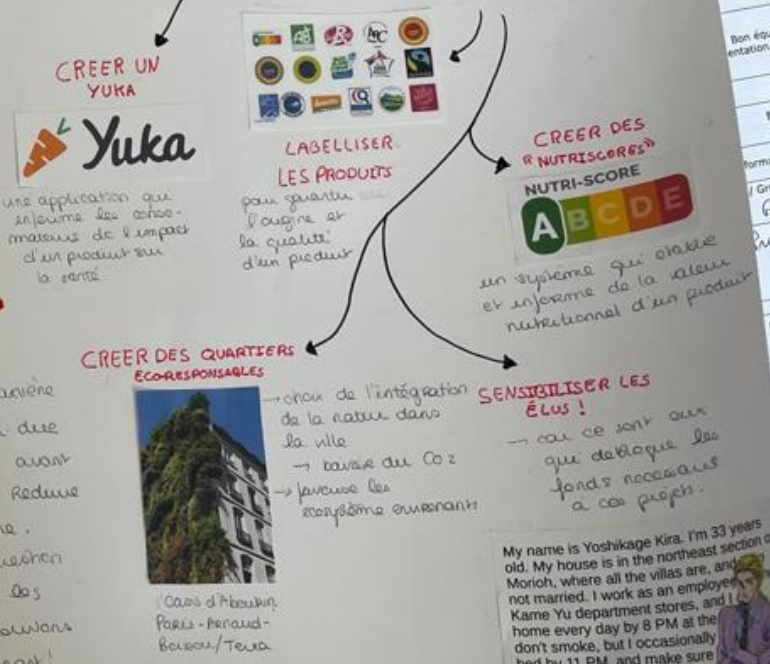 CREER UN
YUKA
Yuka
une application qui
informe les conso-
mateurs de l'impact
d'un produit sur
la santé.
LABELLISER
LES PRODUITS
pour garantir
l'origine et
la qualité
d'un produit
CREER DES
"NUTRISCORES"
NUTRI-SCORE
A B C D E
un système qui établie
et informe de la valeur
nutritionnel d'un produit
CREER DES QUARTIERS
ECO-RESPONSABLES
→ choix de l'intégration
de la nature dans
la ville
→ baisse du CO2
→ favorise les
écosystème environants
L'Oasis d'Aboukir
Paris-Renaud-
SENSIBILISER LES
ÉLUS !
→ car ce sont eux
qui débloque les
fonds nécessaires
à ces projets.
avant
Reduire
les
Bon équ
entation
My name is Yoshikage Kira. I'm 33 years
old. My house is in the northeast section o
Morioh, where all the villas are, and
not married. I work as an employee
Kame Yu department stores, and I
home every day by 8 PM at the
don't smoke, but I occasionally
bed by 11 PM, and make sure